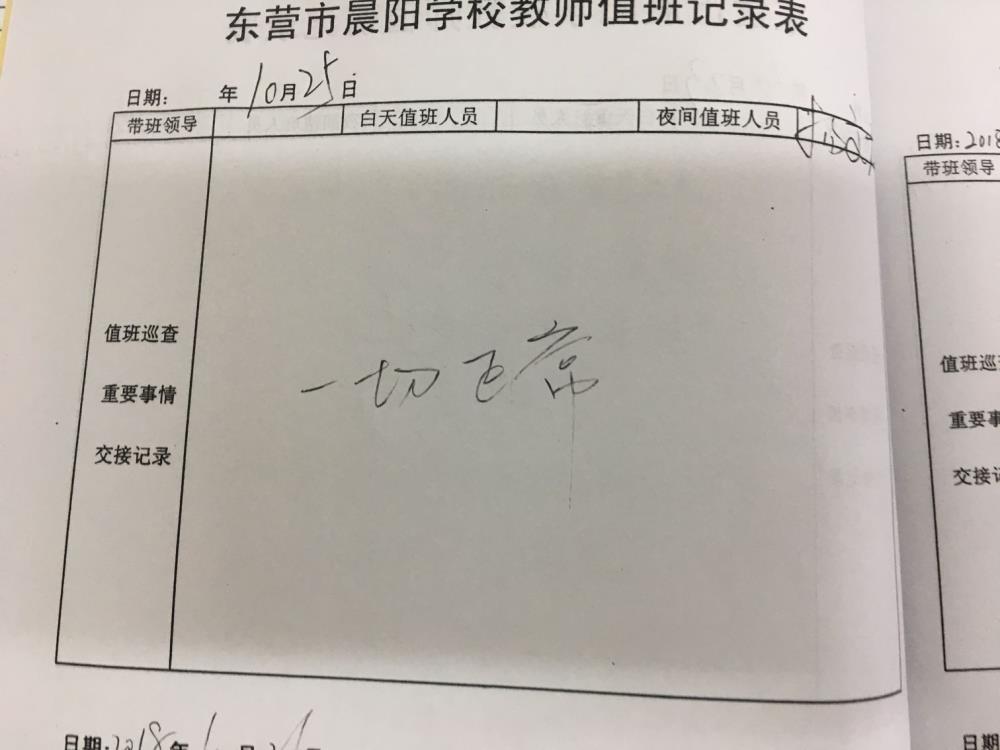 东营市晨阳学校教师值班记录表
日期: 年10月25日
带班领导 白天值班人员 夜间值班人员
值班巡查
重要事情
交接记录
一切正常
日期:2018年 月
日期:2018
带班领导
值班巡
重要事
交接记
日期